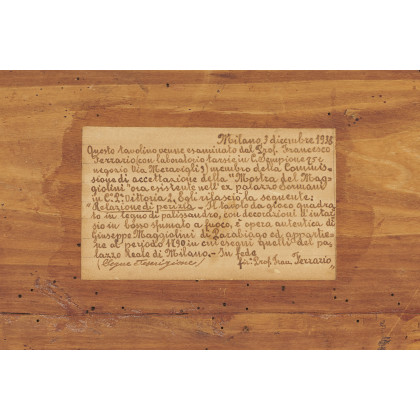 Milano, 3 dicembre 1938
Questo tavolino venne esaminato dal Prof. Francesco
Ferrario (con laboratorio tarsie in C. Sempione
negozio Via Meravigli 3) membro della Commis-
sione di accettazione della "Mostra del Mag-
giolini" ora esistente nell'ex palazzo Sormani
in C. Vittoria. Egli rilasciò la seguente:
Relazione di perizia - Il tavolo da gioco quadra
to in legno di palissandro, con decorazioni d'intar
sio in bosso sfumato a fuoco, è opera autentica di
Giuseppe Maggiolini di Parabiago ed appartie-
ne al periodo 1790 in cui eseguì quelli del pa-
lazzo Reale di Milano. - In fede
(Segue descrizione) Prof. Fran. Ferrario